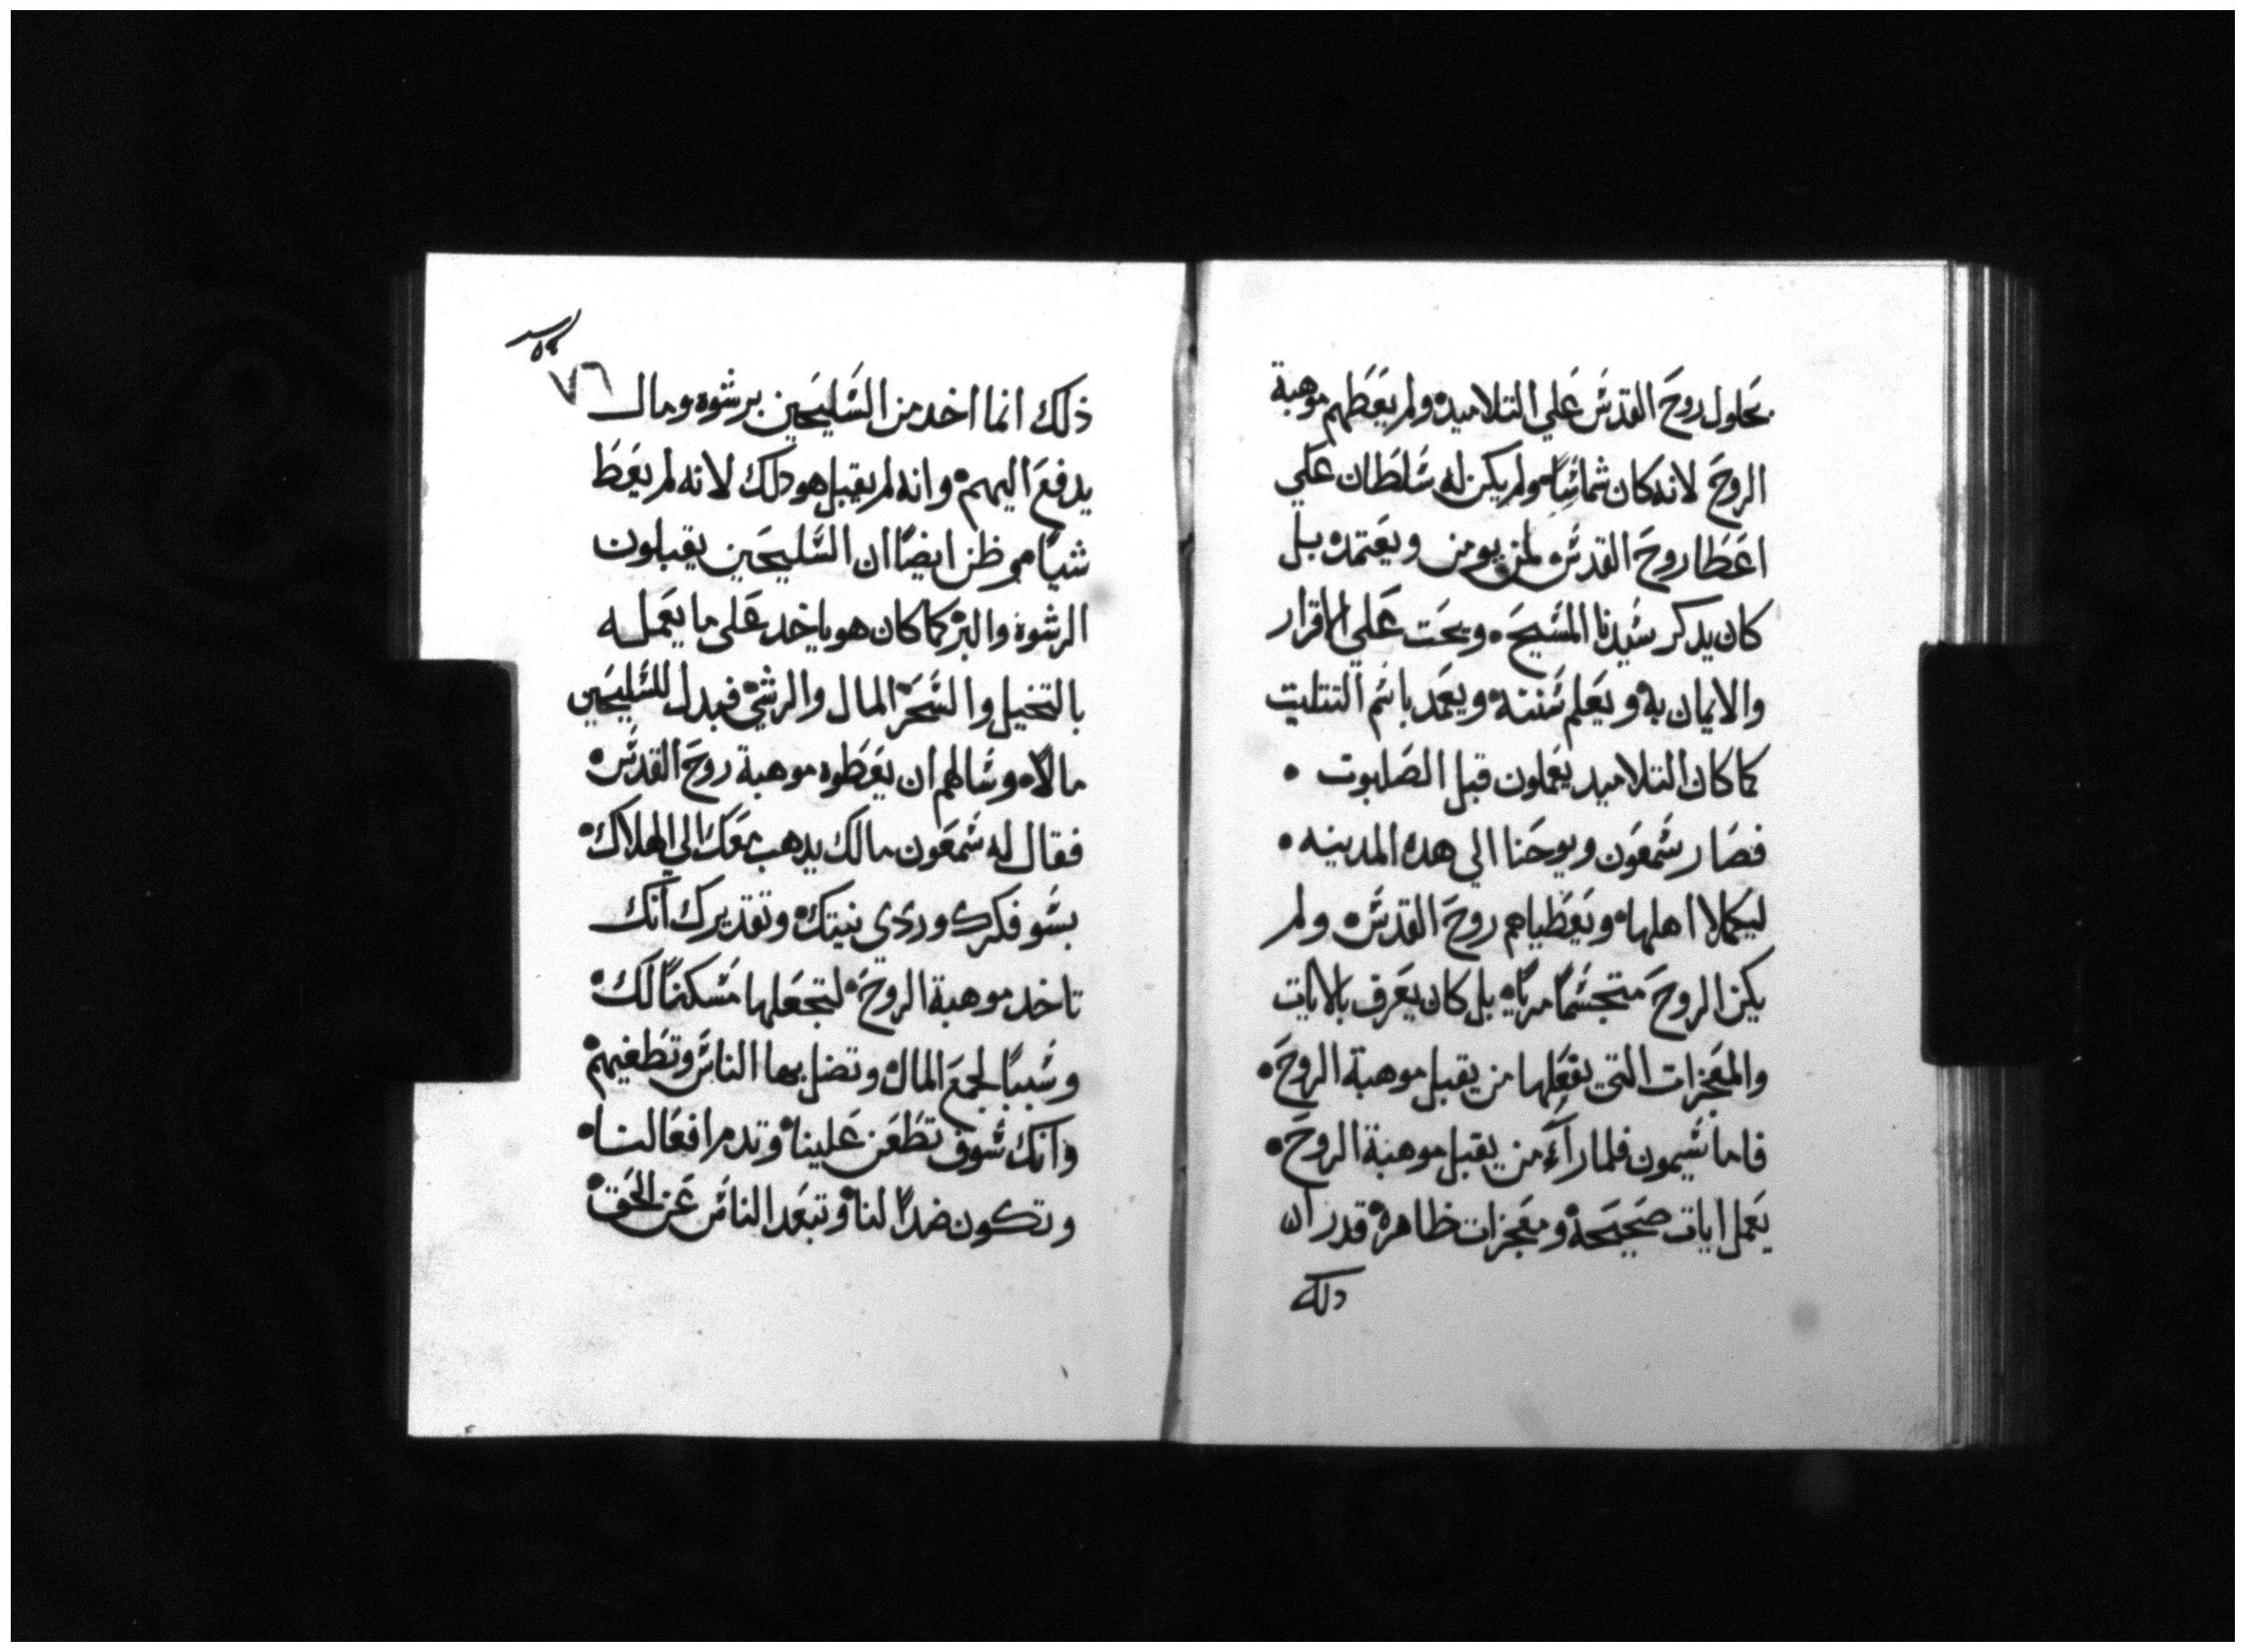 بحلول روح القدس علي التلاميد ولم يعطهم موهبة
الروح لانه كان شماسًا ولم يكن له سلطان علي
اعطا روح القدس لمن يومن ويعتمد بل
كان يدكر سيدنا المسيح ويحت علي الاقرار
والايمان به ويعلم سننه ويعمد باسم التتليت
كما كان التلاميد يعملون قبل الصلبوت
فصار سمعون ويوحنا الي هده المدينه
ليكملا اهلها ويعطياهم روح القدس ولم
يكن الروح متجسمًا مريًا بل كان يعرف بالايات
والمعجزات التي يفعلها من يقبل موهبة الروح
فاما سيمون فلما راء من يقبل موهبة الروح
يعمل ايات صحيحة ومعجزات ظاهرة قدر ان
دلك
٧٦
ذلك انما اخد من السليحين برشوه ومال
يدفع اليهم وانه لم يقبل هو دلك لانه لم يعط
شيًا وظن ايضًا ان السليحين يقبلون
الرشوة والبر كما كان هو ياخد علي ما يعمله
بالتخيل والسحر المال والرشي فبدل للسليحين
مالًا وسالهم ان يعطوه موهبة روح القدس
فقال له سمعون مالك يدهب معك الي الهلاك
بسو فكرك وردي نيتك وتقديرك انك
تاخد موهبة الروح لتجعلها مسكنًا لك
وسببًا لجمع المال وتضل بها الناس وتطغيهم
وانك سوف تطعن علينا وتدم افعالنا
وتكون ضدًا لنا وتبعد الناس عن الحق